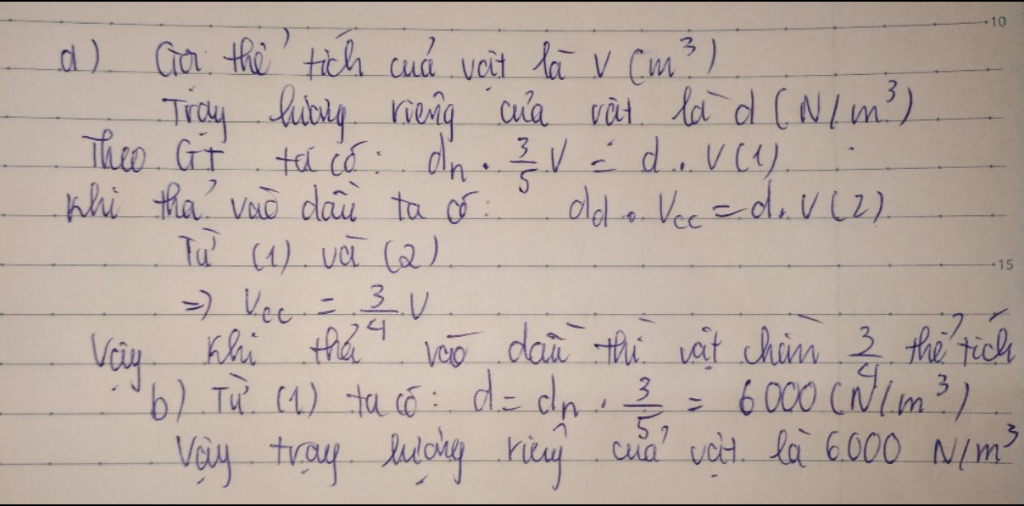 10
a) Gọi thể tích của vật là V (m³)
Trọng lượng riêng của vật là d (N/m³)
Theo GT ta có: dn . 3/5 V = d . V (1)
Khi thả vào dầu ta có: dd . Vcc = d . V (2)
Từ (1) và (2)
15
=> Vcc = 3/4 V
Vậy khi thả vào dầu thì vật chìm 3/4 thể tích
b) Từ (1) ta có: d = dn . 3/5 = 6000 (N/m³)
Vậy trọng lượng riêng của vật là 6000 N/m³